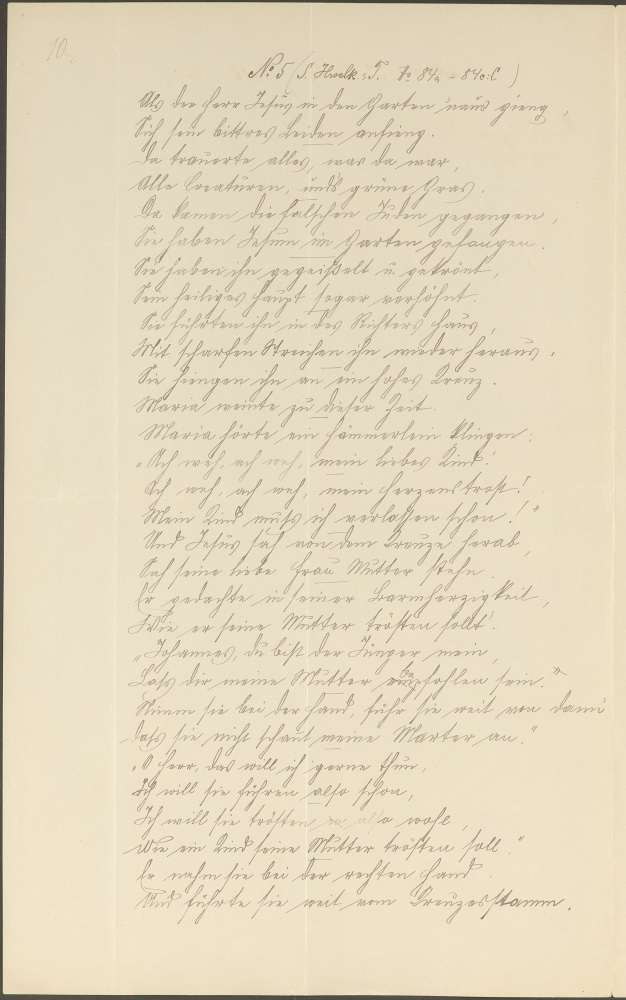 10.
No 5 (S. Hwlk. T. No 84a - 840.C)
Als der Herr Jesus in den Garten 'naus gieng,
Sich sein bittres Leiden anfieng.
Da trauerte alles, was da war,
Alle Creaturen, und's grüne Gras.
Da kamen die falschen Juden gegangen,
Sie haben Jesum im Garten gefangen.
Sie haben ihn gegeißelt u. gekrönt,
Sein heiliges Haupt sogar verhöhnt.
Sie führten ihn in des Richters Haus,
Mit scharfen Streichen ihn wieder heraus.
Sie hiengen ihn an ein hohes Kreuz.
Maria weinte zu dieser Zeit.
Maria hörte ein Hämmerlein klingen:
"Ach weh, ach weh, mein liebes Kind!
Ach weh, ach weh, mein Herzenstrost!
Mein Kind muß ich verlassen schon!"
Und Jesus sah von dem Kreuze herab,
Sah seine liebe Frau Mutter stehn.
Er gedachte in seiner Barmherzigkeit,
Wie er seine Mutter trösten sollt'.
"Johannes, du bist der Jünger mein,
Lass dir meine Mutter befohlen sein."
Nimm sie bei der Hand, führ' sie weit von dann'
dass sie nicht schaut meine Marter an."
"O Herr, das will ich gerne thun,
Ich will sie führen also schon,
Ich will sie trösten also wohl,
Wie ein Kind seine Mutter trösten soll."
Er nahm sie bei der rechten Hand
Und führte sie weit vom Kreuzesstamm.